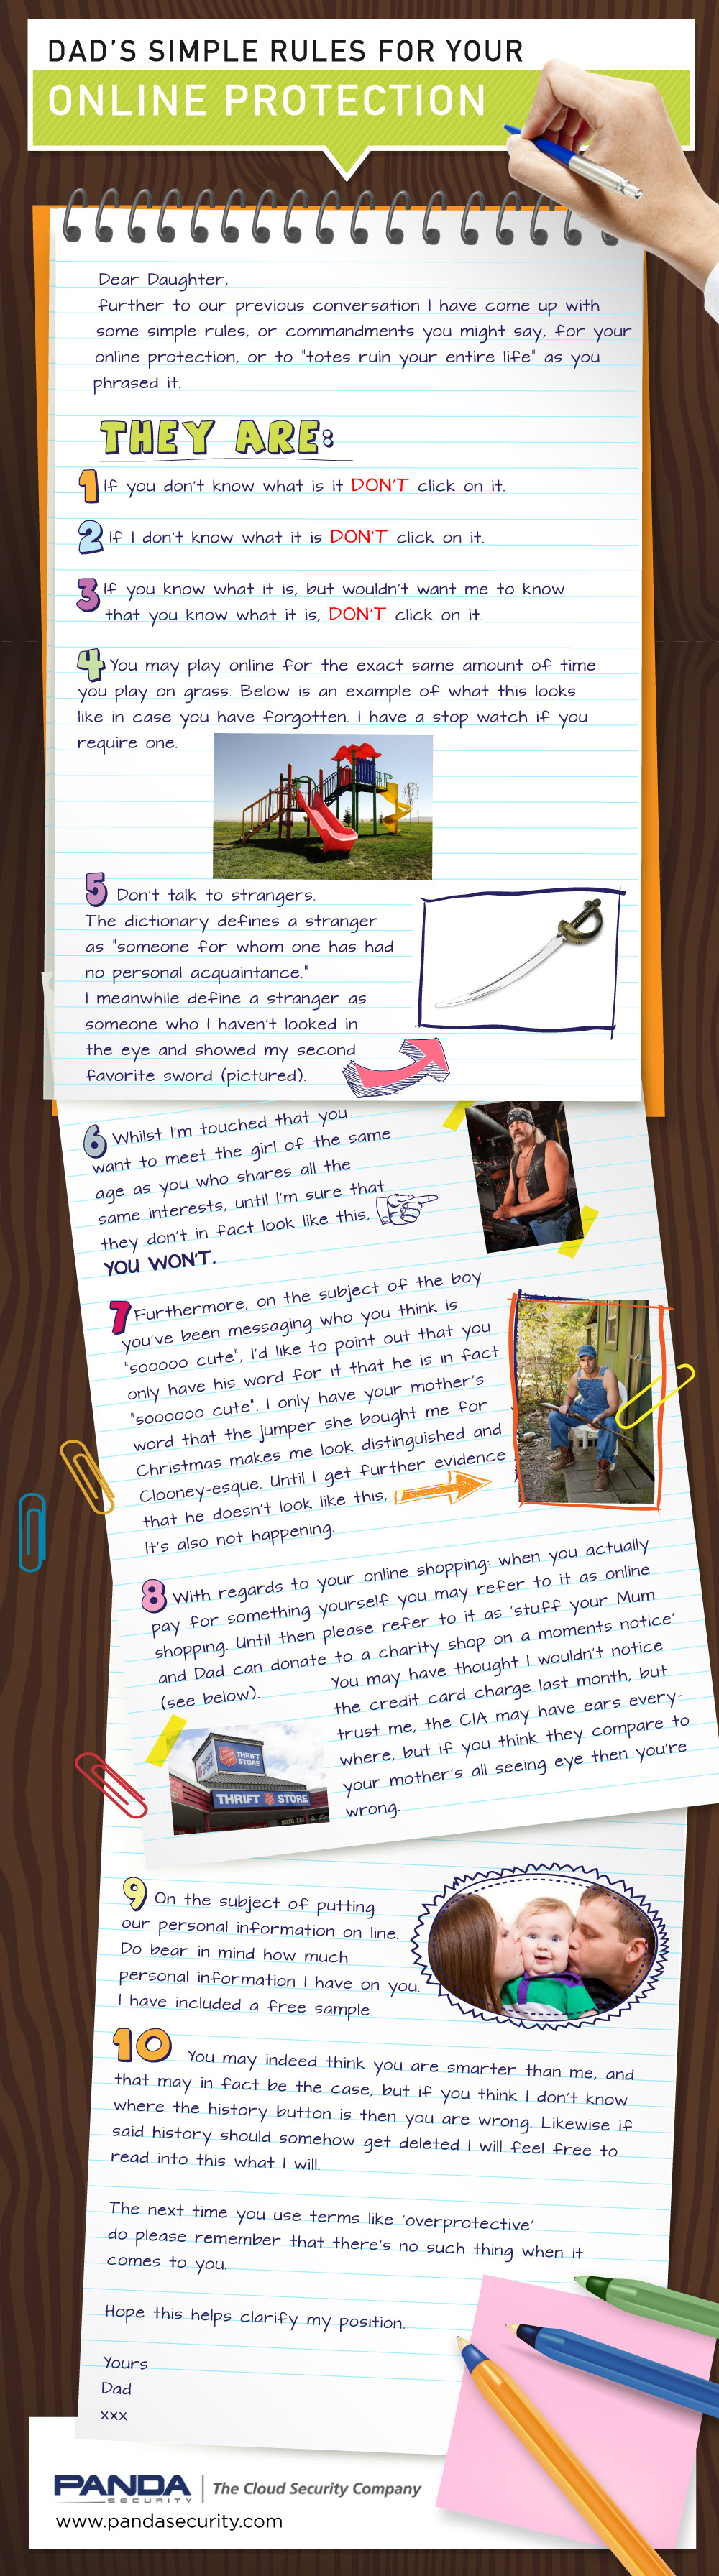 DAD'S SIMPLE RULES FOR YOUR
ONLINE PROTECTION
Dear Daughter,
further to our previous conversation I have come up with
some simple rules, or commandments you might say, for your
online protection, or to "totes ruin your entire life" as you
phrased it.
THEY ARE:
1 If you don't know what is it DON'T click on it.
2 If I don't know what it is DON'T click on it.
3 If you know what it is, but wouldn't want me to know
that you know what it is, DON'T click on it.
4 You may play online for the exact same amount of time
you play on grass. Below is an example of what this looks
like in case you have forgotten. I have a stop watch if you
require one.
5 Don't talk to strangers.
The dictionary defines a stranger
as "someone for whom one has had
no personal acquaintance."
I meanwhile define a stranger as
someone who I haven't looked in
the eye and showed my second
favorite sword (pictured).
6 Whilst I'm touched that you
want to meet the girl of the same
age as you who shares all the
same interests, until I'm sure that
they don't in fact look like this,
YOU WON'T.
7 Furthermore, on the subject of the boy
you've been messaging who you think is
"sooooo cute", I'd like to point out that you
only have his word for it that he is in fact
"soooooo cute". I only have your mother's
word that the jumper she bought me for
Christmas makes me look distinguished and
Clooney-esque. Until I get further evidence
that he doesn't look like this,
It's also not happening.
8 With regards to your online shopping: when you actually
pay for something yourself you may refer to it as online
shopping. Until then please refer to it as 'stuff your Mum
and Dad can donate to a charity shop on a moments notice'
(see below).
You may have thought I wouldn't notice
the credit card charge last month, but
trust me, the CIA may have ears every-
where, but if you think they compare to
your mother's all seeing eye then you're
wrong.
THRIFT
STORE
THRIFT STORE
9 On the subject of putting
our personal information on line.
Do bear in mind how much
personal information I have on you.
I have included a free sample.
10 You may indeed think you are smarter than me, and
that may in fact be the case, but if you think I don't know
where the history button is then you are wrong. Likewise if
said history should somehow get deleted I will feel free to
read into this what I will.
The next time you use terms like 'overprotective'
do please remember that there's no such thing when it
comes to you.
Hope this helps clarify my position.
Yours
Dad
xxx
PANDA
SECURITY
The Cloud Security Company
www.pandasecurity.com